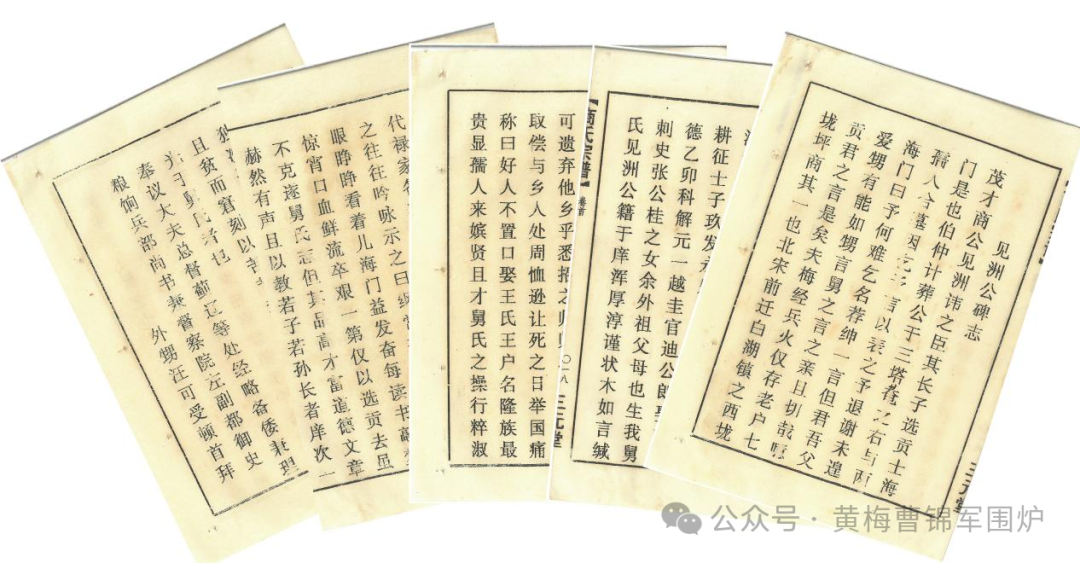 见洲公碑志
茂才商公见洲讳之臣其长子选贡士海
门是也伯仲计葬公于三塔菴之右与两
人言以表之予退谢未遑
海门曰予何难乞名荐绅一言但君吾父
爱甥有能如甥言舅之言之亲且切哉噫
贡君之言是矣夫梅经兵火仅存老户七
垅坪商其一也北宋前迁白湖镇之西垅
三元堂
耕征士子玖发
德乙卯科解元一越圭官迪公郎
刺史张公桂之女余外祖父母也生我舅
氏见洲公籍于庠浑厚淳谨状木如言缄
【商氏宗谱】卷首
三元堂
可遗弃他乡乎悉招之归
取偿与乡人处周恤逊让死之日举国痛
称曰好人不置口娶王氏王户名隆族最
贵显孺人来嫔贤且才舅氏之操行粹淑
代禄家
之往往吟咏示之曰
眼睁睁看着儿海门益发奋每读书
惊宵口血鲜流卒艰一第仅以选贡去虽
不克遂舅氏志但其品高才富道德文章
赫然有声且以教若子若孙长者庠次
且贫而刻以
舅氏者也
奉议大夫总督蓟辽等处经略备倭兼理
粮饷兵部尚书兼督察院左副都御史
外甥汪可受顿首拜
公众号·黄梅曹锦军围炉